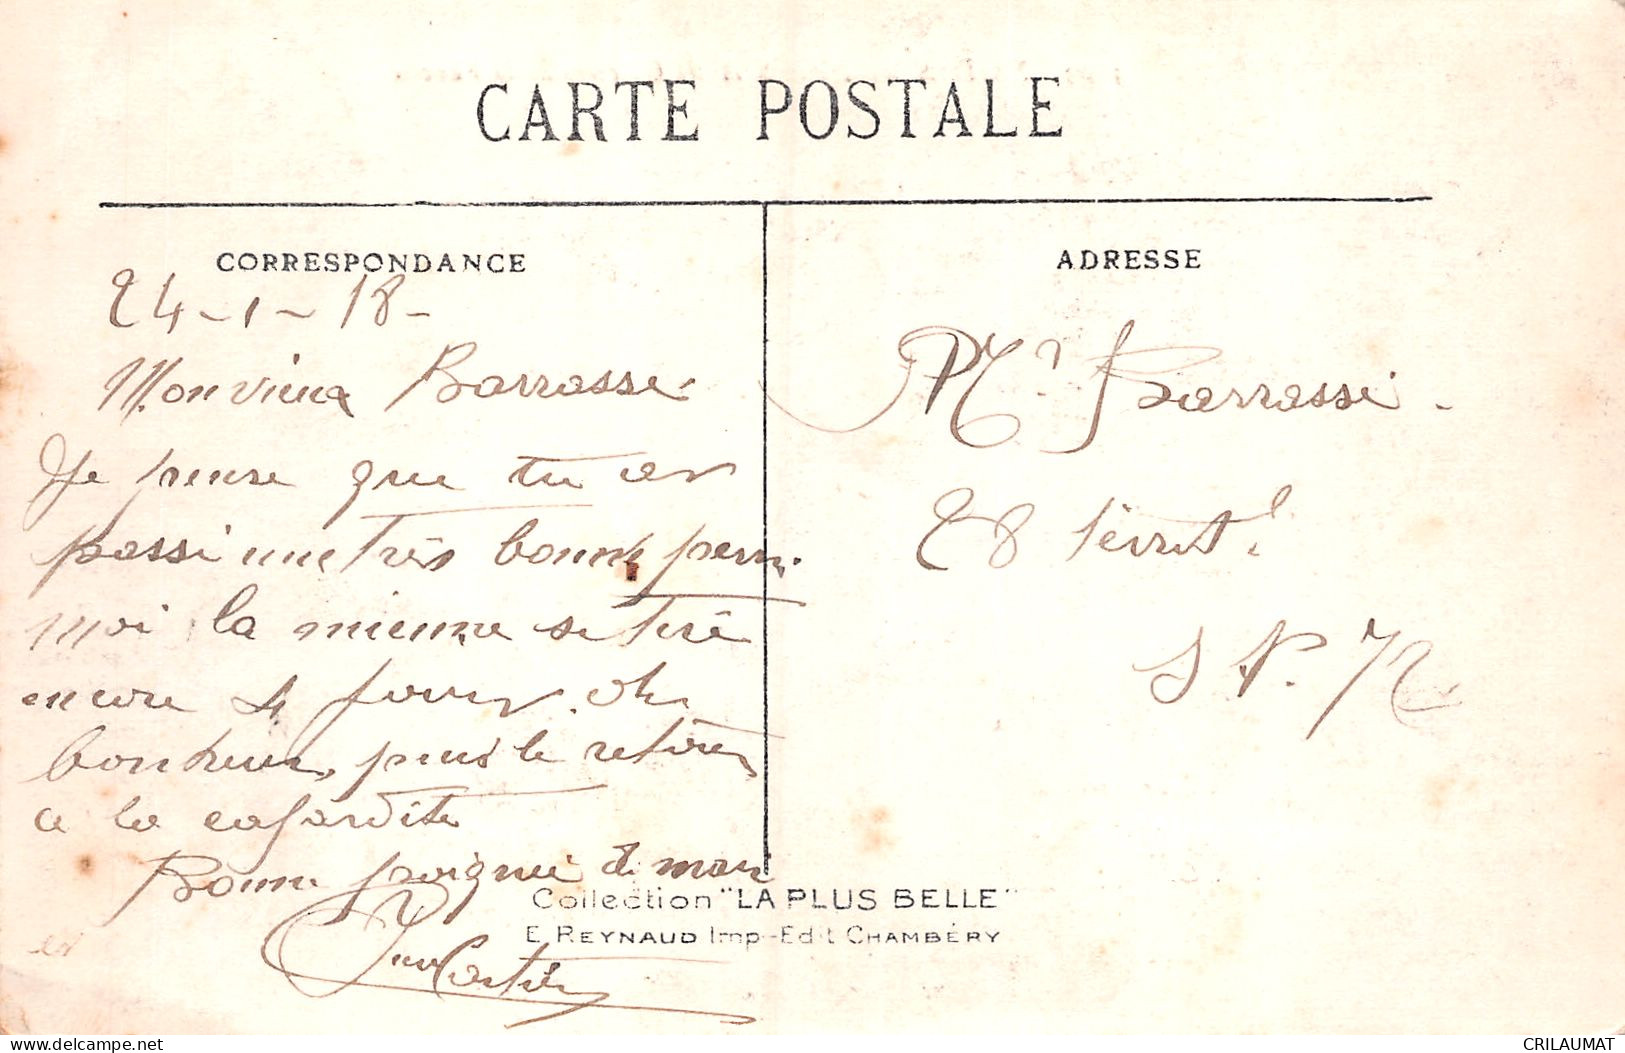 CARTE POSTALE
CORRESPONDANCE
24-1-18-
Mon vieux Barrasse.
Je pense que tu as
passé une très bonne perm.
moi la mienne se tire
encore 4 jours. Oh
bonheur, puis le retour
a la cafardite
Bonne poignée de main
Collection "LA PLUS BELLE"
E. REYNAUD Imp-Edit CHAMBÉRY
ADRESSE
Mr Barrassé.
28
S P. 72
delcampe.net
CRILAUMAT